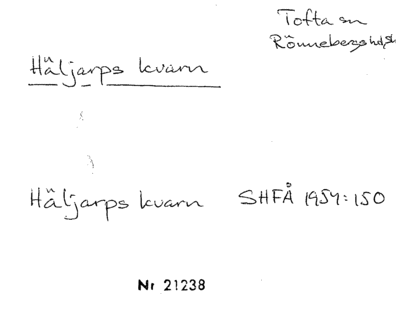 Tofta sn
Rönnebergs hd, Sk
Häljarps kvarn
Häljarps kvarn SHFÅ 1954:150
Nr 21238